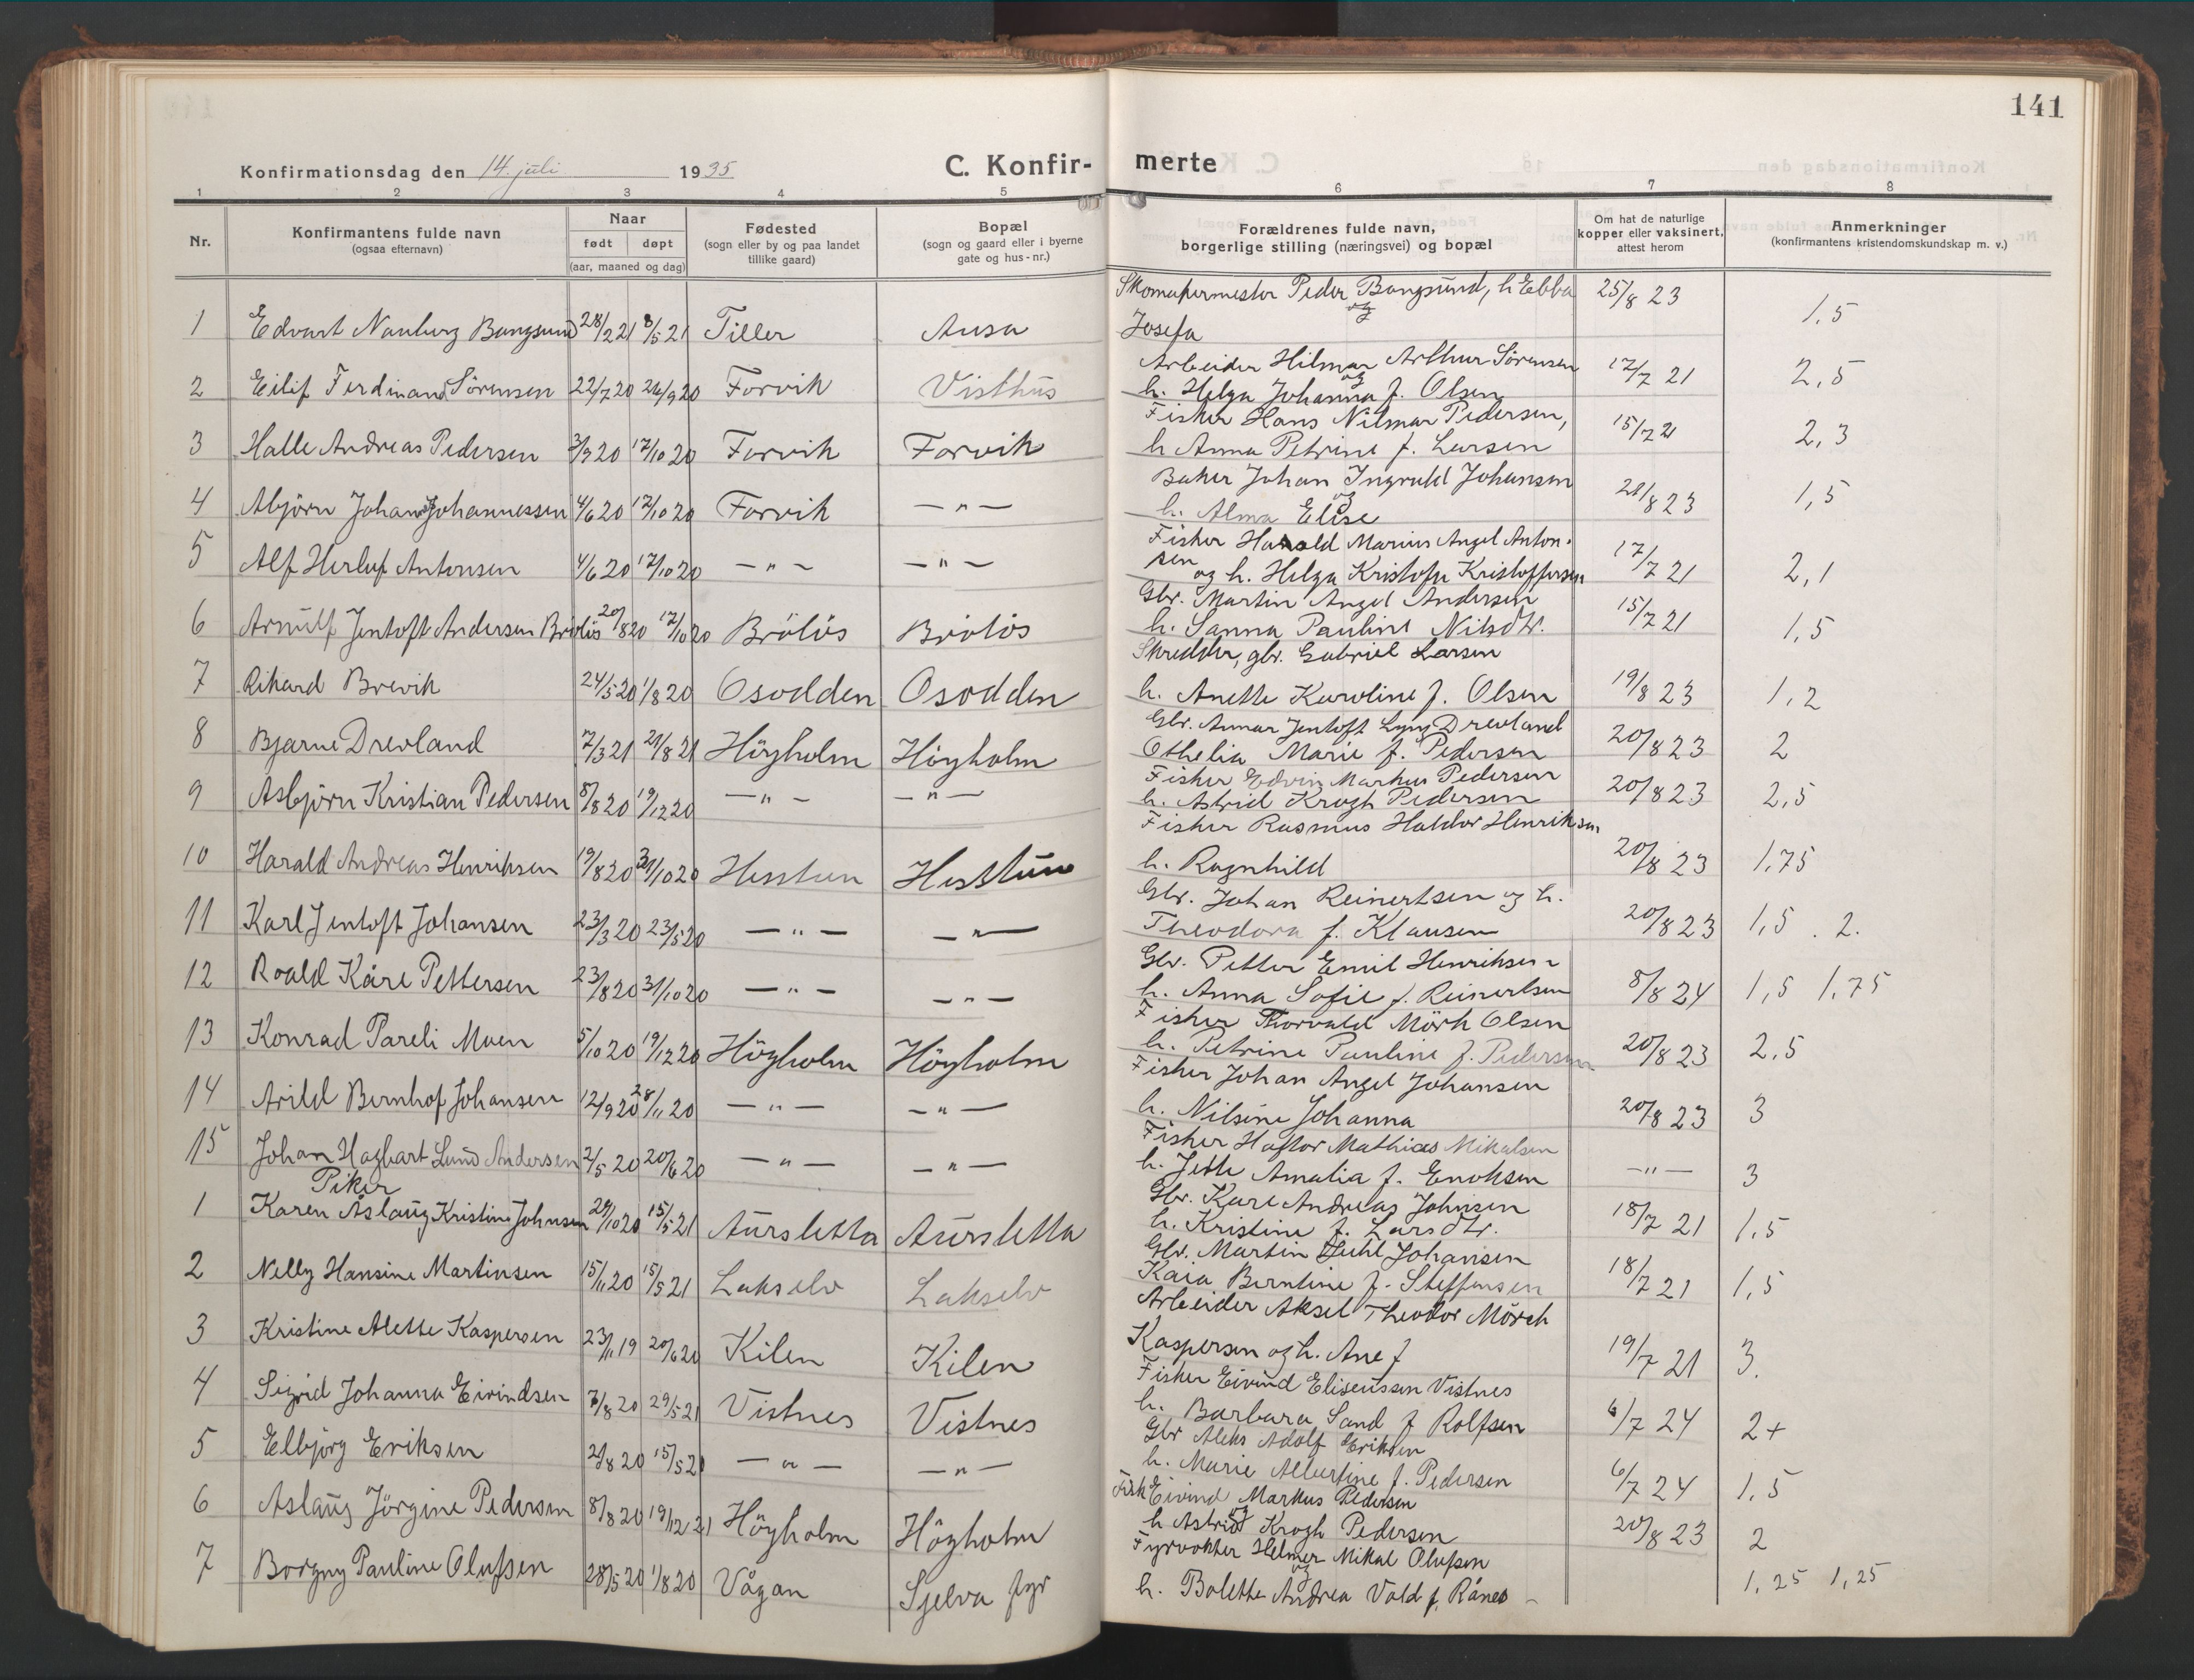 141
Konfirmationsdag den 14. juli 1935
C. Konfir- merte
1 2 3 4 5 6 7 8
Nr.
Konfirmantens fulde navn
(ogsaa efternavn)
Naar
født døpt
(aar, maaned og dag)
Fødested
(sogn eller by og paa landet
tillike gaard)
Bopæl
(sogn og gaard eller i byerne
gate og hus-nr.)
Forældrenes fulde navn,
borgerlige stilling (næringsvei) og bopæl
Om hat de naturlige
kopper eller vaksinert,
attest herom
Anmerkninger
(konfirmantens kristendomskundskap m. v.)
Skomakermester Peder Bangsund, h Ebba 25/8 23
og
1 Edvart Nauberg Bangsund 28/2 21 8/5 21 Tiller Ausa Josefa 1,5
Arbeider Hilmar Arthur Sørensen 17/7 21
og
2 Eilif Ferdinand Sörensen 22/7 20 26/9 20 Forvik Visthus h. Helga Johanna f. Olsen 2,5
Fisker Hans Nilmar Pedersen, 15/7 21
3 Halle Andreas Pedersen 3/9 20 17/10 20 Forvik Forvik h Anna Petrine f. Larsen 2,3
Baker Johan Ingvald Johansen
og
4 Abjörn Johan Johannessen 4/6 20 17/10 20 Forvik — " — h. Alma Elise 28/8 23 1,5
Fisker Harald Marius Angel Anton-
sen
5 Alf Herluf Antonsen 4/6 20 17/10 20 — " — — " — og h. Helga Kristofa Kristoffersen 17/7 21 2,1
Gbr. Martin Angel Andersen
6 Arnulf Jentoft Andersen Brölös 20/8 20 17/10 20 Brölös Brölös h. Sanna Pauline Nilsdtr. 15/7 21 1,5
Skredder, gbr. Gabriel Larsen
7 Rikard Brevik 24/5 20 1/8 20 Osodden Osodden h. Anette Karoline f. Olsen 19/8 23 1,2
Gbr. Annar Jentoft Lyng Drevland
8 Bjarne Drevland 7/3 21 21/8 21 Höyholm Höyholm Othelia Marie f. Pedersen 20/8 23 2
Fisker Edvin Markus Pedersen
9 Asbjörn Kristian Pedersen 8/8 20 19/12 20 — " — — " — h. Astrid Krogh Pedersen 20/8 23 2,5
Fisker Rasmus Haldor Henriksen
10 Harald Andreas Henriksen 19/8 20 31/10 20 Hesstun Hesstun h. Ragnhild 20/8 23 1,75
Gbr. Johan Reinertsen og h.
11 Karl Jentoft Johansen 23/3 20 23/5 20 — " — — " — Theodora f. Klausen 20/8 23 1,5 . 2.
Gbr. Petter Emil Henriksen
12 Roald Kåre Pettersen 23/8 20 31/10 20 — " — — " — h. Anna Sofie f. Reinertsen 8/8 24 1,5 1,75
Fisker Thorvald Mörk Olsen
13 Konrad Pareli Moen 5/10 20 19/12 20 Höyholm Höyholm h. Petrine Pauline f. Pedersen 20/8 23 2,5
Fisker Johan Angel Johansen
14 Arild Bernhof Johansen 12/9 20 28/11 20 — " — — " — h. Nilsine Johanna 20/8 23 3
Fisker Haftor Mathias Mikalsen
15 Johan Hagbart Lund Andersen 2/5 20 20/6 20 — " — — " — h. Jette Amalia f. Enoksen — " — 3
Piker
Gbr. Karl Andreas Johnsen
1 Karen Åslaug Kristine Johnsen 29/10 20 15/5 21 Aursletta Aursletta h. Kristine f. Larsdtr. 18/7 21 1,5
Gbr. Martin Juhl Johansen
2 Nelly Hansine Martinsen 15/11 20 15/5 21 Lakselv Lakselv Kaia Berntine f. Steffensen 18/7 21 1,5
Arbeider Aksel Theodor Mörch
3 Kristine Alette Kaspersen 23/11 19 20/6 20 Kilen Kilen Kaspersen og h. Ane f 19/7 21 3.
Fisker Eivind Eliseussen Vistnes
4 Sigrid Johanna Eivindsen 7/8 20 29/5 21 Vistnes Vistnes h. Barbara Sand f Rolfsen 6/7 24 2+
Gbr Aleks Adolf Eriksen
5 Elbjörg Eriksen 21/8 20 15/5 20 — " — — " — h. Marie Albertine f. Pedersen 6/7 24 1,5
Fisk Eivind Markus Pedersen
og
6 Aslaug Jörgine Pedersen 8/8 20 19/12 21 Höyholm Höyholm h Astrid Krogh Pedersen 20/8 23 2
Fyrvokter Helmer Mikal Olufsen
og
7 Borgny Pauline Olufsen 28/5 20 1/8 20 Vågan Sjelva fyr h. Bolette Andrea Vold f. Rånes 1,25 1,25